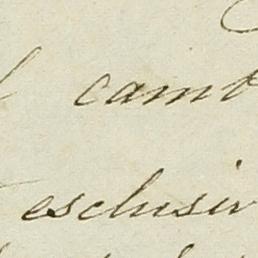 camb
esclusiv